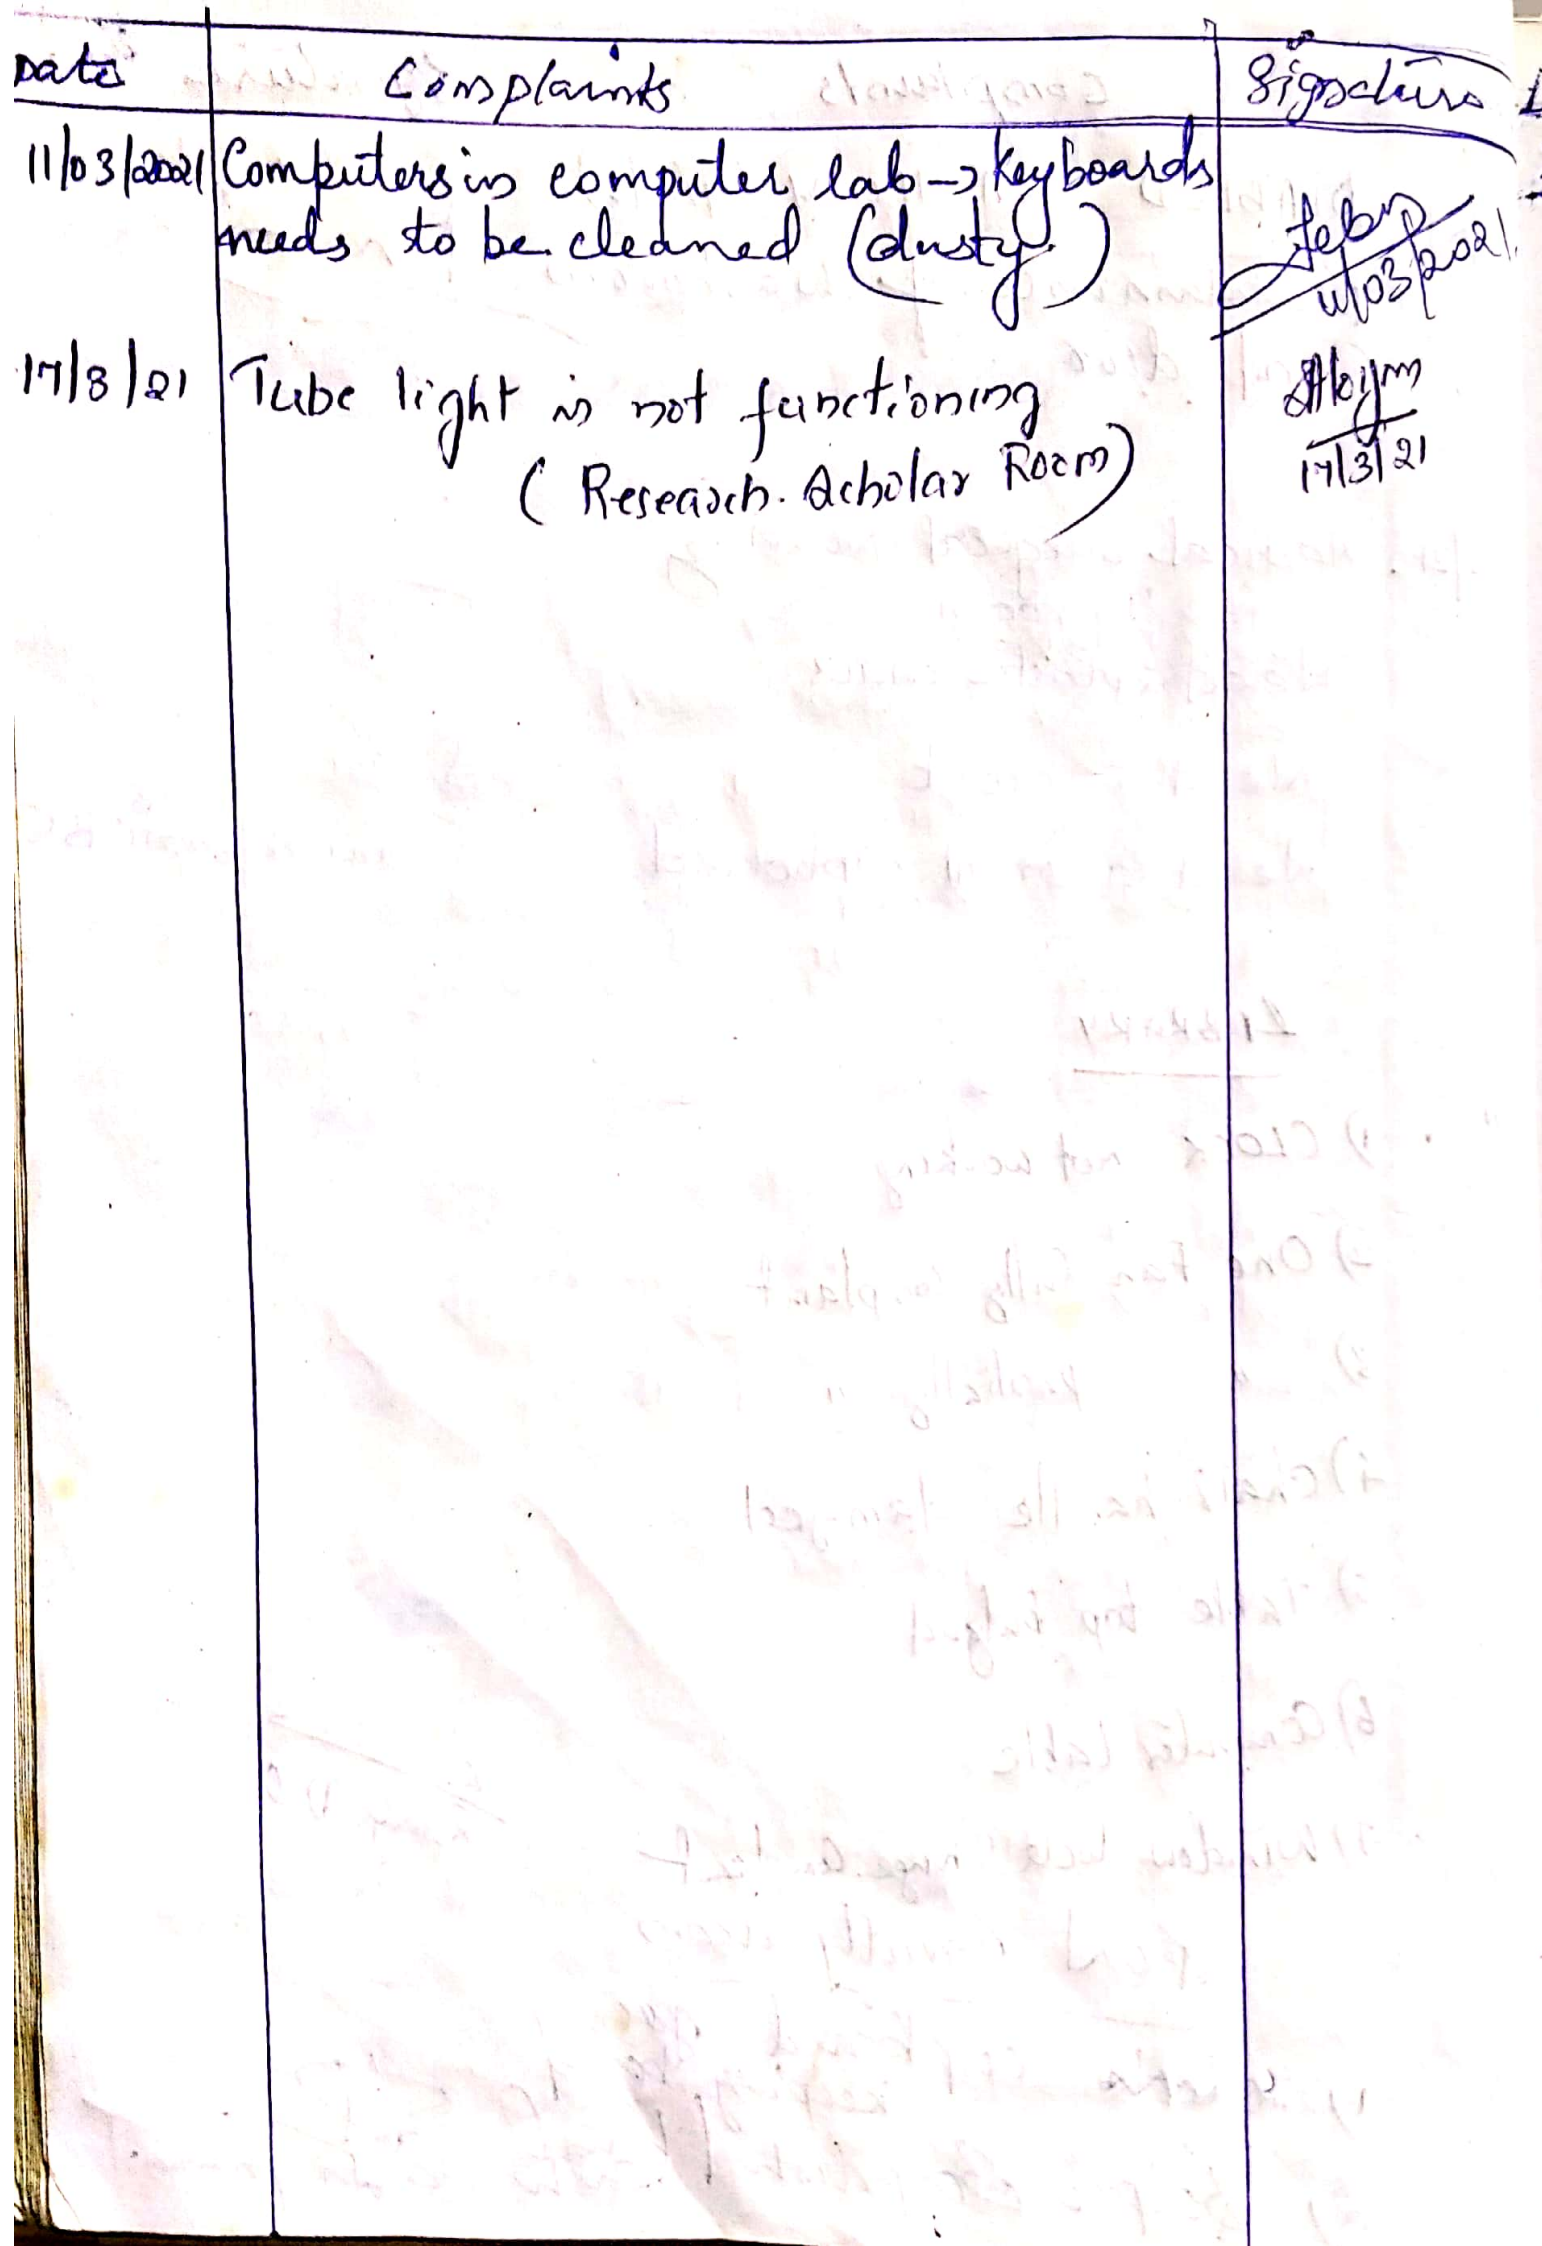 Date Complaints Signature
11/03/2021 Computers in computer lab → Keyboards
needs to be cleaned (dusty.)
11/03/2021.
17/3/21 Tube light is not functioning
(Research. Scholar Room)
17/3/21